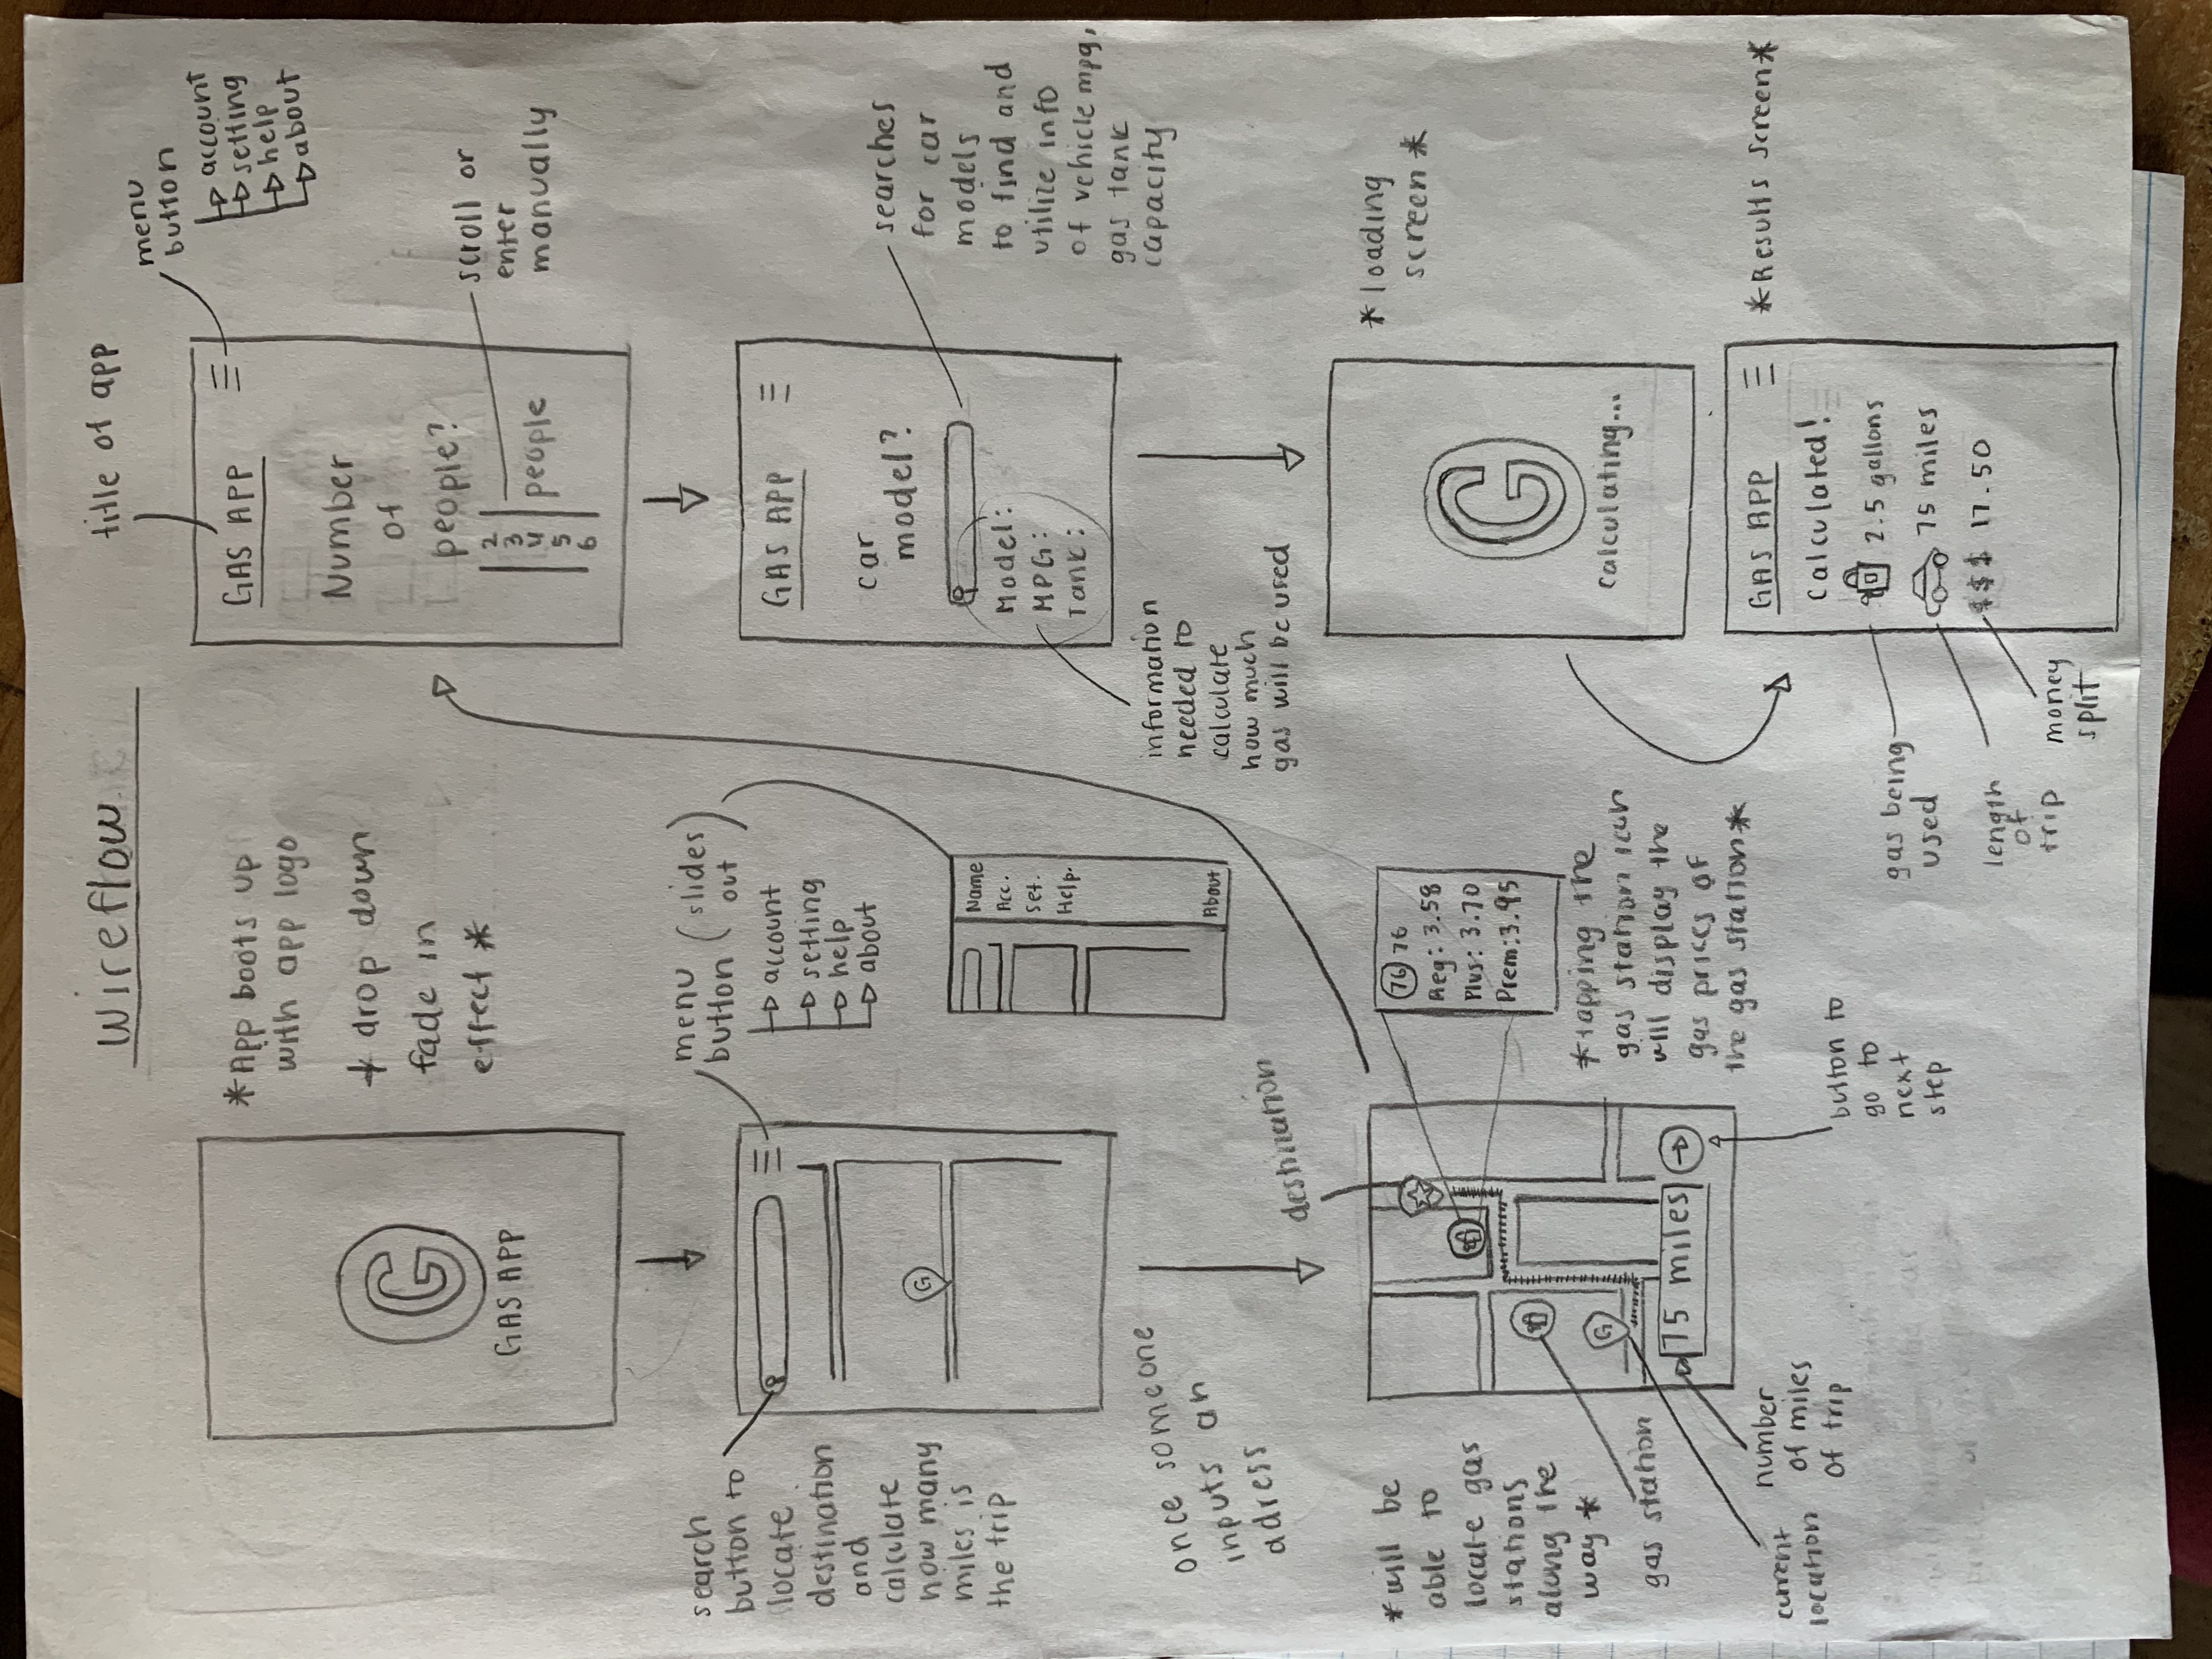 Wireflow
G
GAS APP
*App boots up
with app logo
+ drop down
fade in
effect *
search
button to
locate
destination
and
calculate
how many
miles is
the trip
menu
button (slides
out)
account
setting
help
about
G
Name
Acc.
Set.
Help.
About
once someone
inputs an
adress
destination
*will be
able to
locate gas
stations
along the
way *
gas station
G
75 miles
current
location
number
of miles
of trip
button to
go to
next
step
76 76
Reg: 3.58
Plus: 3.70
Prem: 3.95
*tapping the
gas station icon
will display the
gas prices of
the gas station*
title of app
menu
button
account
setting
help
about
GAS APP
Number
of
people?
2
3
4
5
6
people
scroll or
enter
manually
GAS APP
car
model?
Model:
MPG:
Tank:
searches
for car
models
to find and
utilize info
of vehicle mpg,
gas tank
capacity
information
needed to
calculate
how much
gas will be used
G
calculating...
* loading
screen *
GAS APP
calculated!
2.5 gallons
75 miles
$$$ 17.50
*Results screen*
gas being
used
length
of
trip
money
split